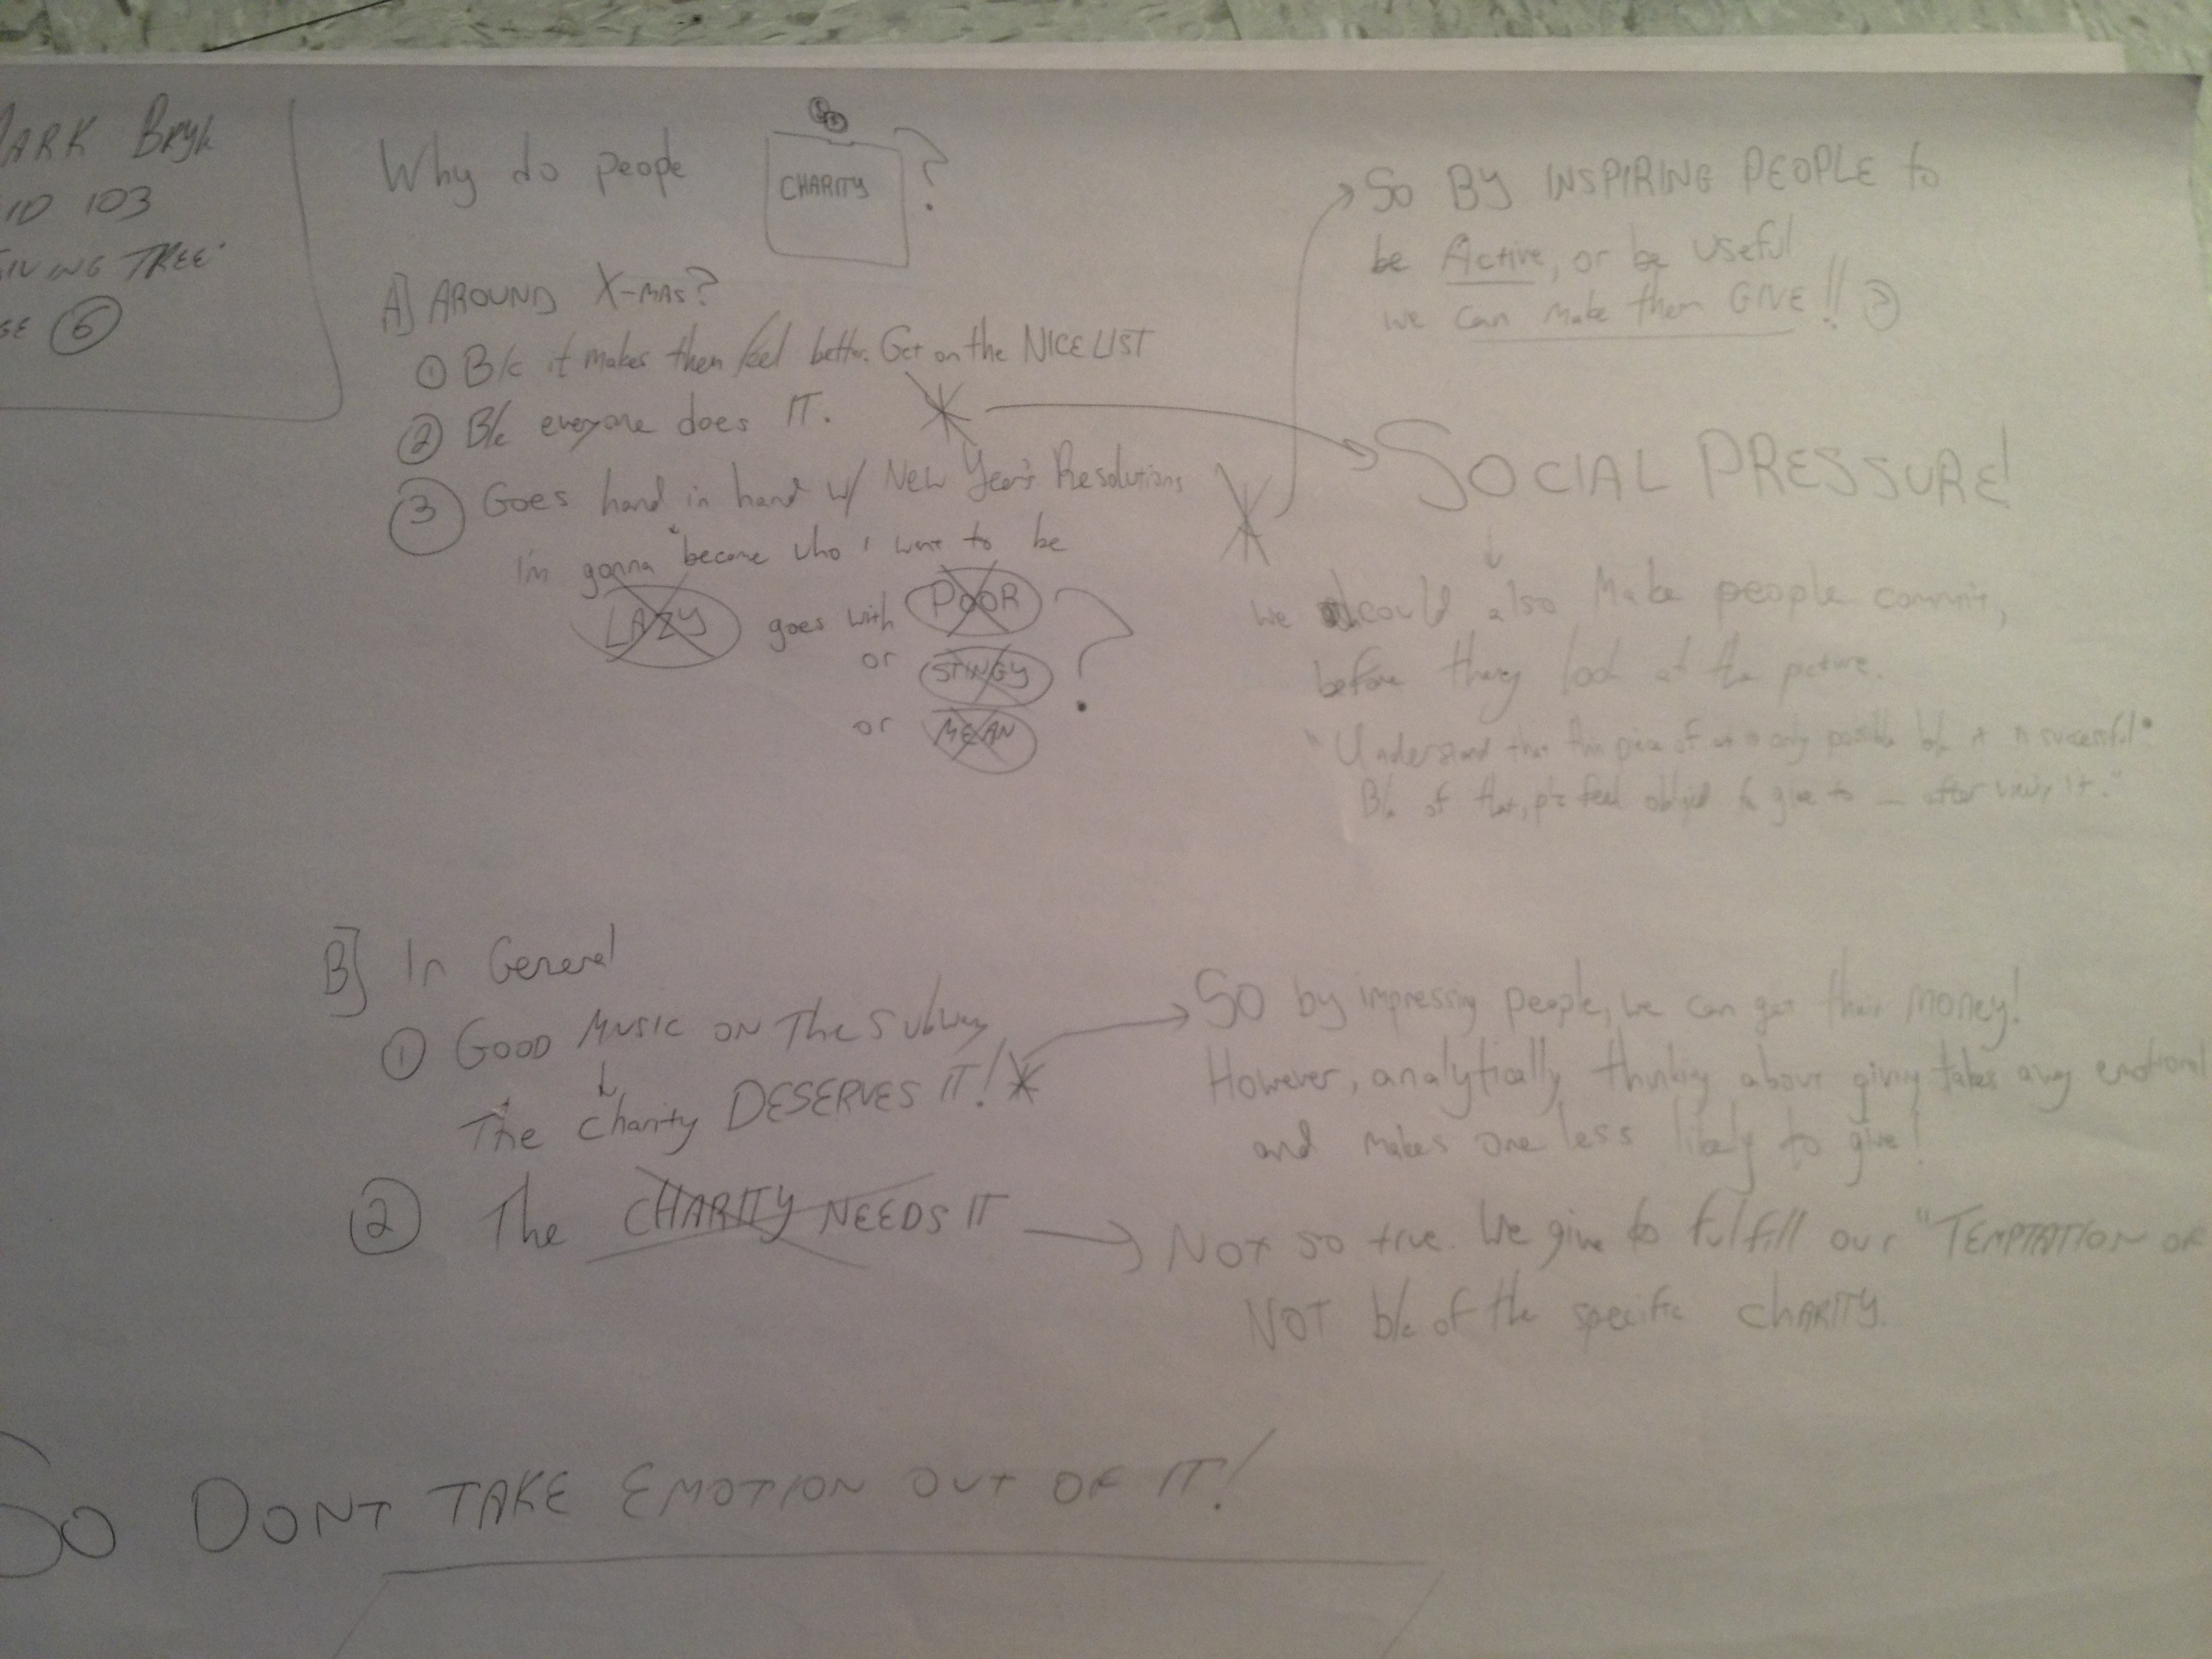 ARK Bryk
ID 103
IVING TREE"
GE 6
Why do people CHARITY ?
A] AROUND X-MAS?
① B/c it makes them feel better. Get on the NICE LIST
② B/c everyone does IT.
③ Goes hand in hand w/ New Year's Resolutions
I'm gonna "become who I want to be
LAZY goes with POOR ?
or STINGY
or MEAN
So BY INSPIRING PEOPLE to
be Active, or be useful
we can make them GIVE!!
SOCIAL PRESSURE!
we could also Make people commit,
before they look at the picture.
"Understand that this piece of is only possible b/c it is successful"
B/c of that, feel to give to — after it."
B] In General
① GOOD MUSIC ON The Subway
The charity DESERVES IT!
② The CHARITY NEEDS IT
So by impressing people, we can get their money!
However, analytically thinking about giving takes away emotional
and makes one less likely to give!
Not so true. We give to fulfill our "TEMPTATION OF
NOT b/c of the specific CHARITY.
SO DONT TAKE EMOTION OUT OF IT!